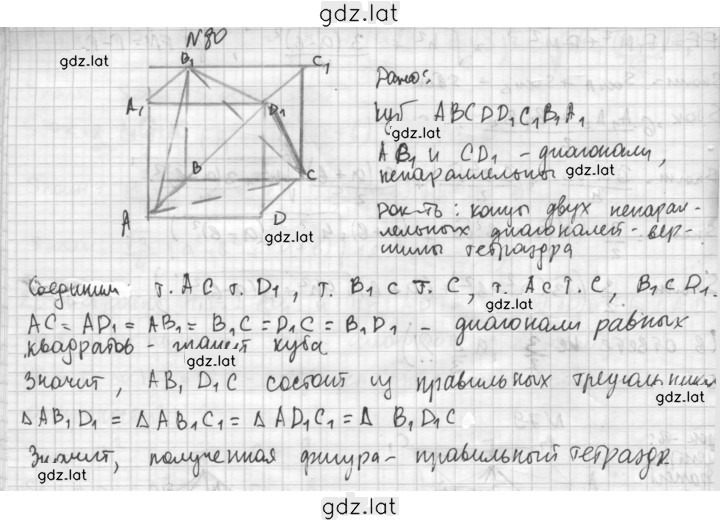 gdz.lat
N80
gdz.lat
B₁ C₁
A₁ D₁
B C
A D
gdz.lat
Дано:
куб ABCDD₁C₁B₁A₁
gdz.lat
AB₁ и CD₁ - диагонали,
непараллельны
gdz.lat
Док-ть: концы двух непарал-
лельных диагоналей - вер-
шины тетраэдра
gdz.lat
Соединим т. A с т. D₁, т. B₁ с т. C, т. A с т. C, B₁ с D₁.
gdz.lat
AC = AD₁ = AB₁ = B₁C = D₁C = B₁D₁ - диагонали равных
квадратов - граней куба
gdz.lat
Значит, AB₁D₁C состоит из правильных треугольников
gdz.lat
Δ AB₁D₁ = Δ AB₁C₁ = Δ AD₁C₁ = Δ B₁D₁C
Значит, полученная фигура - правильный тетраэдр
gdz.lat
gdz.lat
gdz.lat